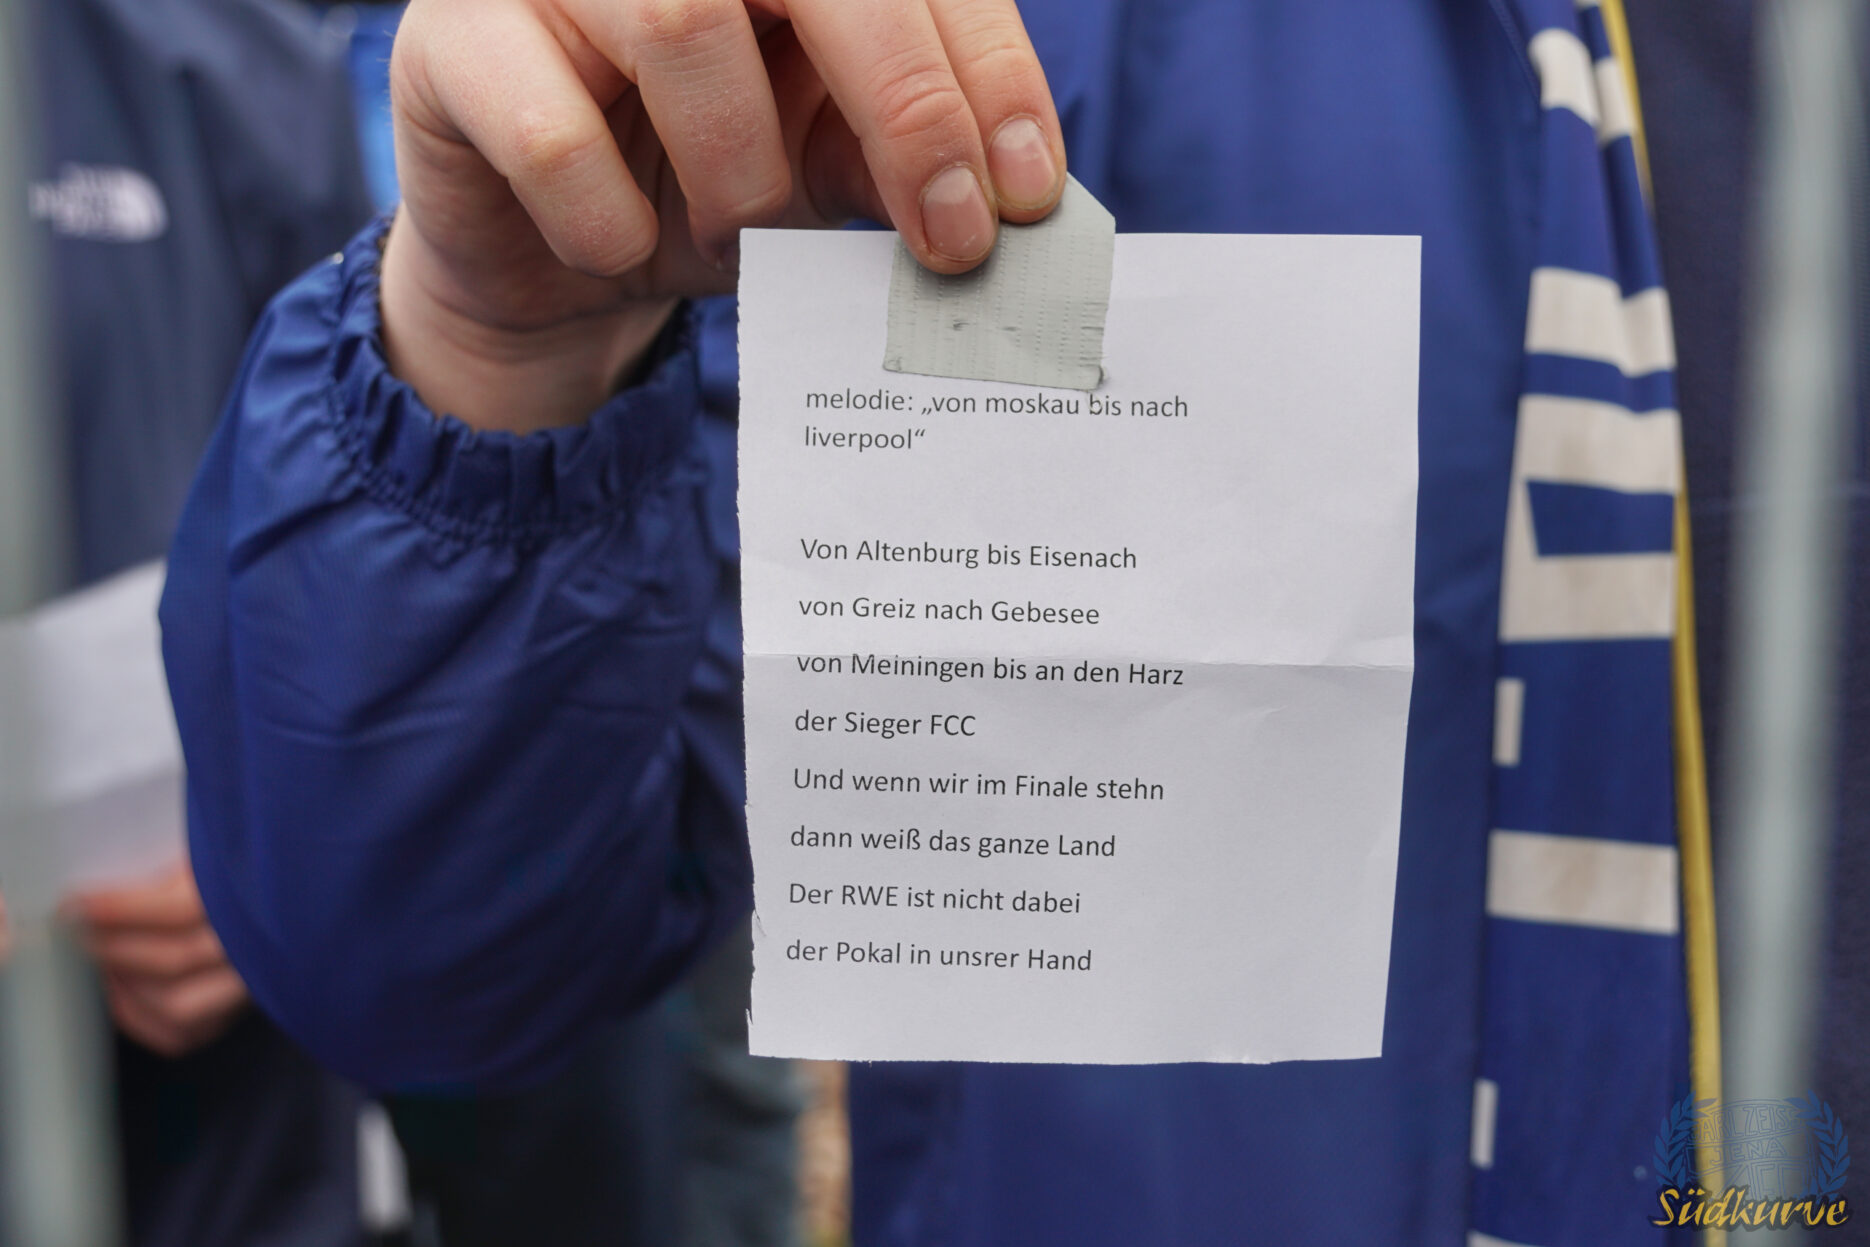 melodie: „von moskau bis nach
liverpool“
Von Altenburg bis Eisenach
von Greiz nach Gebesee
von Meiningen bis an den Harz
der Sieger FCC
Und wenn wir im Finale stehn
dann weiß das ganze Land
Der RWE ist nicht dabei
der Pokal in unsrer Hand
CARL ZEISS
JENA
Südkurve